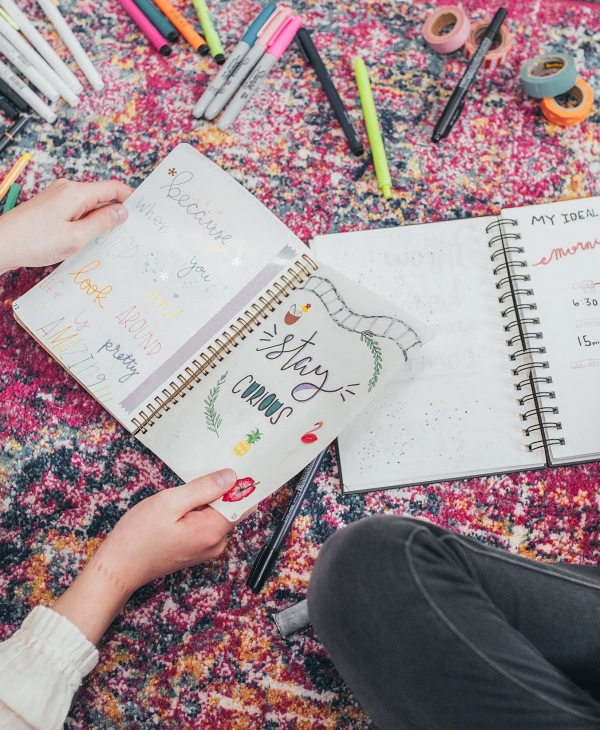 because
when
you
STOP
and
look
AROUND
life
is
pretty
AMAZING
stay
CURIOUS
MY IDEAL
morni
6:30
15m